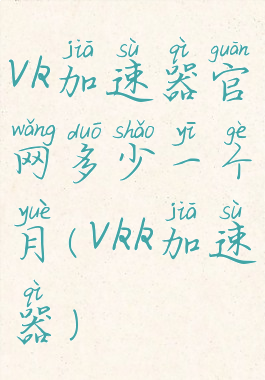 jiā sù qì guān
VR加速器官
wǎng duō shǎo yī gè
网多少一个
yuè jiā sù
月(VRR加速
qì
器)